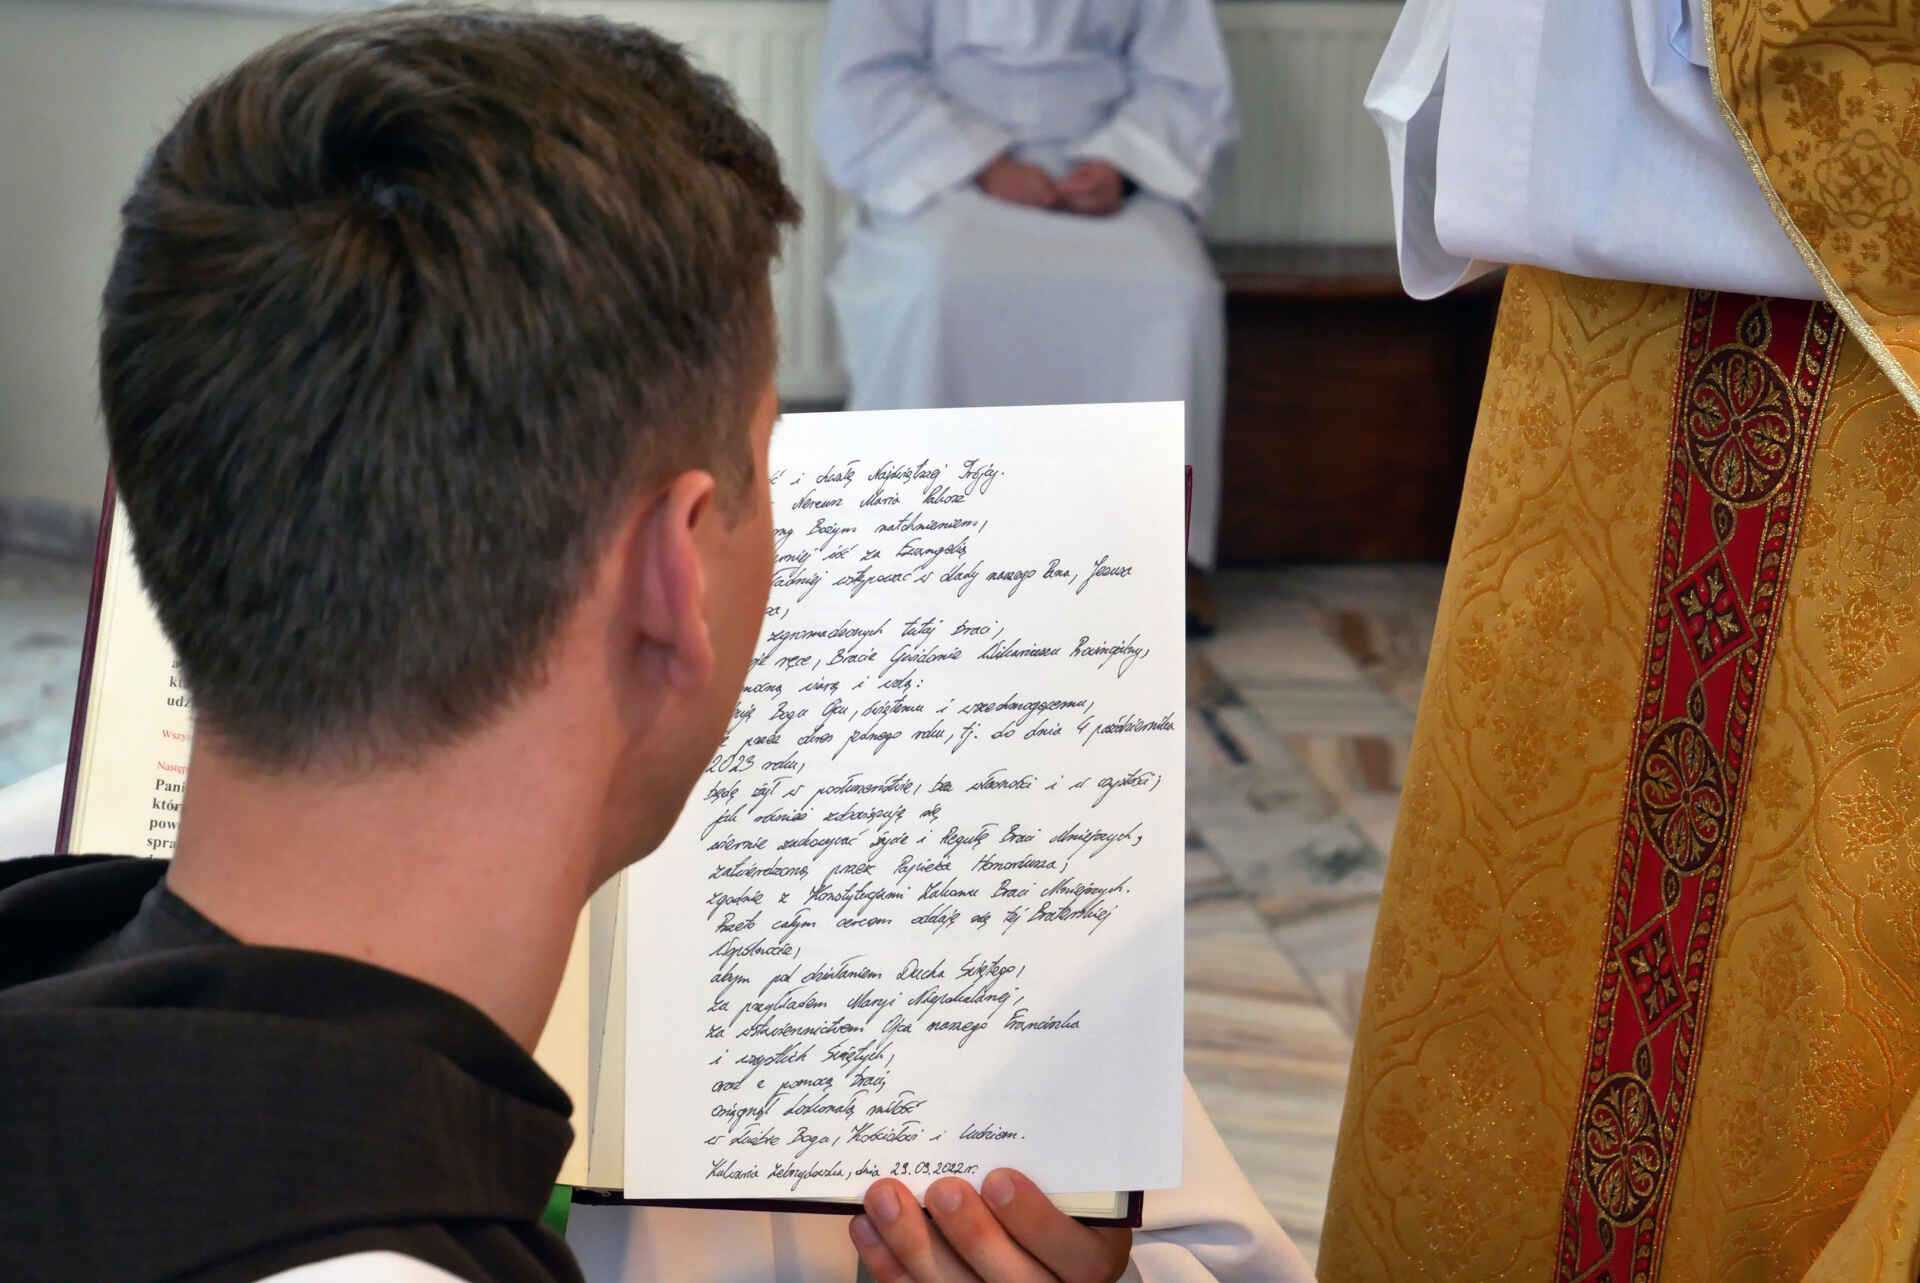 i chwałę Najświętszej Trójcy.
Nereusz Maria
Bożym natchnieniem,
iść za Ewangelią
wstępować w ślady naszego Pana, Jezusa
zgromadzonych tutaj braci,
ręce, Bracie Gwidonie Wikariuszu Prowincjalny,
mocną wiarą i wolą:
Bogu Ojcu, świętemu i wszechmogącemu,
przez okres jednego roku, tj. do dnia 4 października
2023 roku,
będę żył w posłuszeństwie, bez własności i w czystości;
jak również zobowiązuję się
wiernie zachowywać życie i Regułę Braci Mniejszych,
zatwierdzoną przez Papieża Honoriusza,
zgodnie z Konstytucjami Zakonu Braci Mniejszych.
Przeto całym sercem oddaję się tej Braterskiej
Wspólnocie,
abym pod działaniem Ducha Świętego,
za przykładem Maryi Niepokalanej,
za wstawiennictwem Ojca naszego Franciszka
i wszystkich Świętych,
oraz z pomocą braci,
osiągnął doskonałą miłość
w służbie Boga, Kościołowi i ludziom.
Kalwaria Zebrzydowska, dnia 29.09.2022 r.
udz
Wszy
Następ
Pani
któr
pow
spra